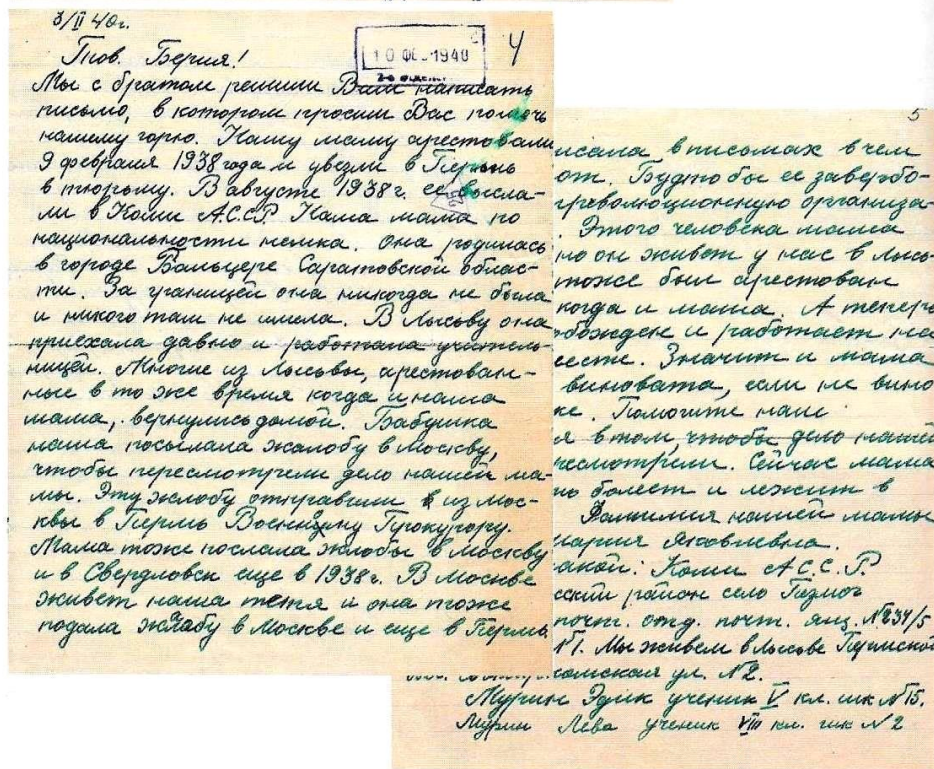 3/II 40г.
4
10 ФЕВ 1940
Тов. Берия!
Мы с братом решили Вам написать
письмо, в котором просим Вас помочь
нашему горю. Нашу маму арестовали
9 февраля 1938 года и увезли в Пермь
в тюрьму. В августе 1938 г. ее высла-
ли в Коми А.С.С.Р. Наша мама по
национальности немка. она родилась
в городе Бальцере Саратовской облас-
ти. За границей она никогда не была
и никого там не имела. В Лысьву она
приехала давно и работала учитель-
ницей. Многие из Лысьвы, арестован-
ные в то же время когда и наша
мама, вернулись домой. Бабушка
наша посылала жалобу в Москву,
чтобы пересмотрели дело нашей ма-
мы. Эту жлобу отправили из Мос-
квы в Пермь Военному Прокурору.
Мама тоже послала жлобы в Москву
и в Свердловск еще в 1938 г. В Москве
живет наша тетя и она тоже
подала жалобу в Москве и еще в Пермь
5
исала в письмах в чем
от. Будто бы ее завербо-
треволюционную организа-
. Этого человека мама
но он живет у нас в Лысь
тоже был арестован
когда и мама. А теперь
обожден и работает на
есте. Значит и мама
виновата, если не вино
же. Помогите нам
я в том, чтобы дело нашей
ресмотрели. Сейчас мама
но болеет и лежит в
Фамилия нашей мамы
мария Яковлевна.
акой: Коми А.С.С.Р.
сский район село Пезмог
почт. отд. почт. ящ. №234/5
№1. Мы живем в Лысьве Пермской
комская ул. №2.
Мурин Эдик ученик V кл. шк №15.
Мурин Лёва ученик VIII кл. шк №2